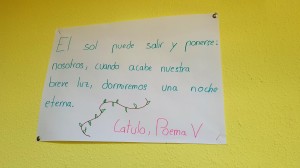 El sol puede salir y ponerse;
nosotros, cuando acabe nuestra
breve luz, dormiremos una noche
eterna.
Catulo, Poema V